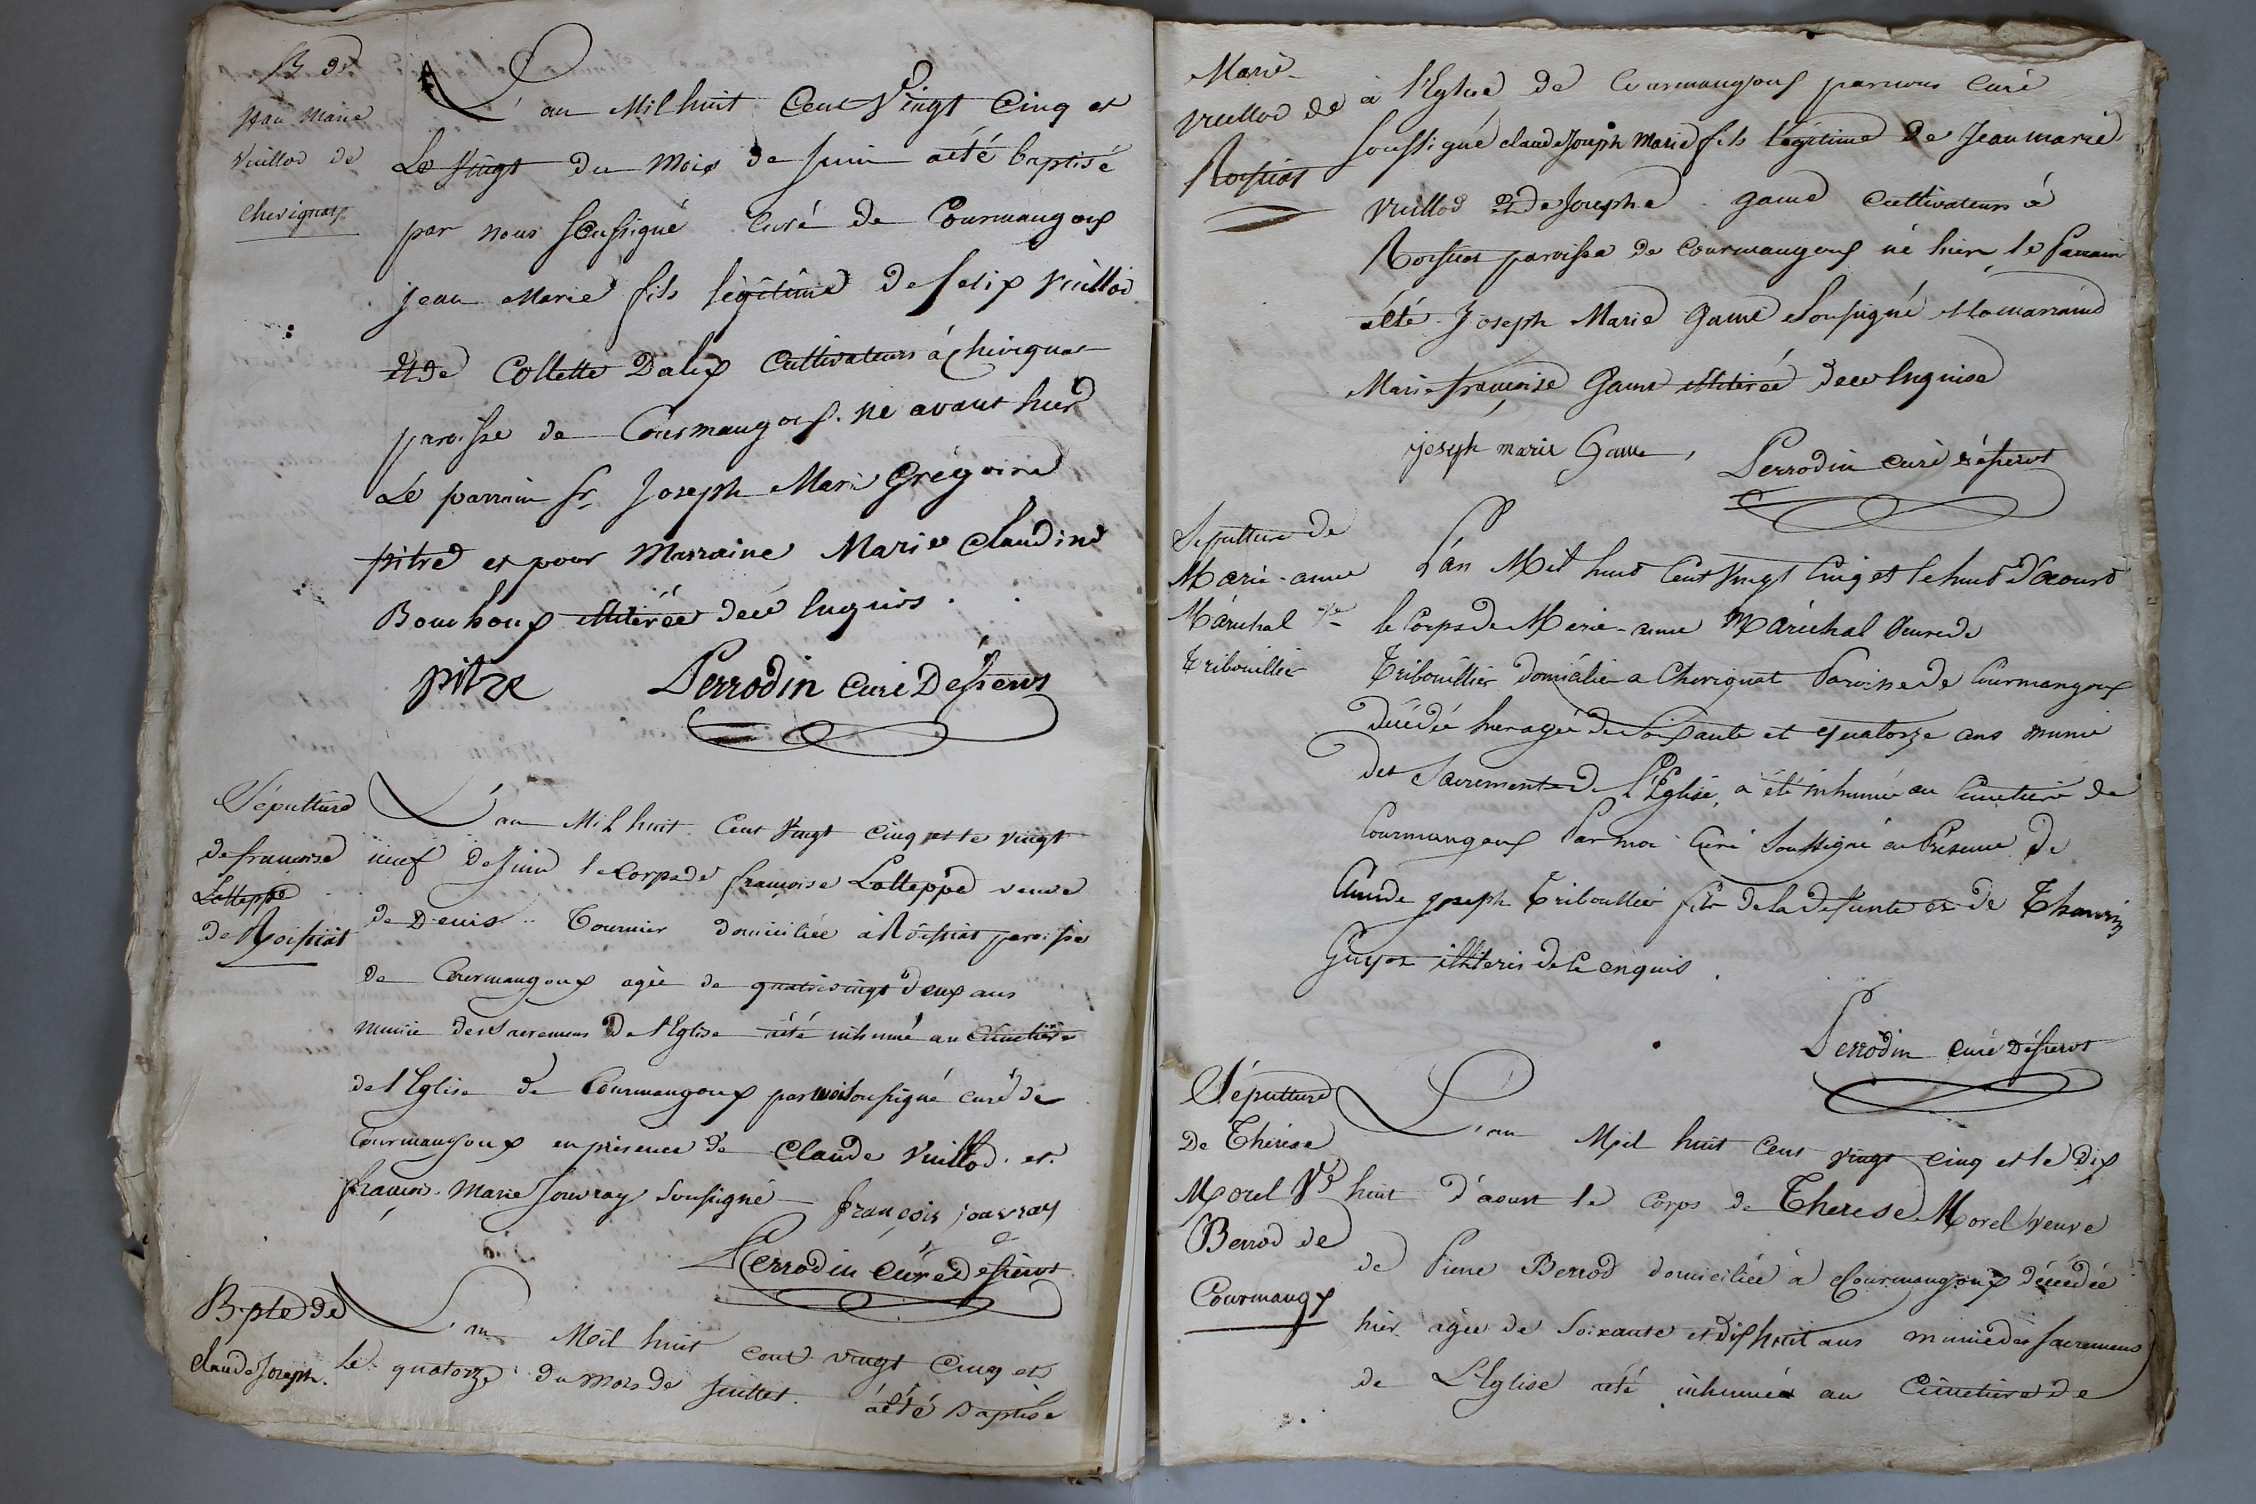 B de
Jean Marie
Vuillod de
Chevignat
L'an Mil huit Cent Vingt Cinq et
Le Vingt du Mois de Juin a été baptisé
par nous soussigné Curé de Courmangoux
jean Marie fils légitime de felix Vuillod
et de Collette Dalix Cultivateurs à Chevignat
paroisse de Courmangoux né avant hier
Le parrain fr. Joseph Marie Grégoire
pitre et pour Marraine Marie Claudine
Bouchoux illitérée de ce enquis.
pitre Perrodin Curé Desservt
Sépulture
de francoise
Latteppe
de Roissiat
L'an Mil huit Cent Vingt Cinq et le vingt
neuf de Juin le Corps de françoise Latteppe veuve
de Denis Tournier domiciliée à Roissiat paroisse
de Courmangoux agée de quatrevingt deux ans
munie des sacremens de l'Eglise a été inhumé au Cimetière
de l'Eglise de Courmangoux par moi soussigné curé de
Courmangoux en présence de Claude Vuillod et
françois Marie Jouvray soussigné françois jouvray
Perrodin Curé Desservt
Bpte de
Claude Joseph.
L'an Mil huit cent vingt Cinq et
le quatorze du mois de juillet a été Baptisé
Marie
Vuillod de
Roissiat
à l'Eglise de Courmangoux par nous Curé
soussigné Claude Joseph Marie fils légitime de Jean marie
Vuillod et de Josephe Game Cultivateurs à
Roissiat paroisse de Courmangoux né hier le Parrain
a été Joseph Marie Game soussigné et la marraine
Marie françoise Game illitérée de ce enquise
joseph marie Game, Perrodin curé désservt
Sepulture de
Marie-anne
Maréchal Ve
Tribouillier
L'an Mil huit Cent Vingt Cinq et le huit d'aoust
le Corps de Marie-anne Maréchal Veuve de
Tribouillier domiciliée a Chevignat Paroisse de Courmangoux
décédée hier agée de Soixante et quatorze ans munie
des Sacrements de l'Eglise, a été inhumée au Cimetière de
Courmangoux Par moi Curé Soussigné en Présence de
Claude joseph Triboullier fils de la defunte et de
Guyot illiteris de Ce enquis.
Perrodin Curé Desservt
Sépulture
De Thérèse
Morel Ve
Berrod de
Courmangx
L'an Mil huit Cent vingt cinq et le dix
huit d'aoust le Corps de Therese Morel veuve
de Pierre Berrod domiciliée à Courmangoux décédée
hier agée de Soixante et dix huit ans munie des sacremens
de L'Eglise a été inhumée au Cimetière de